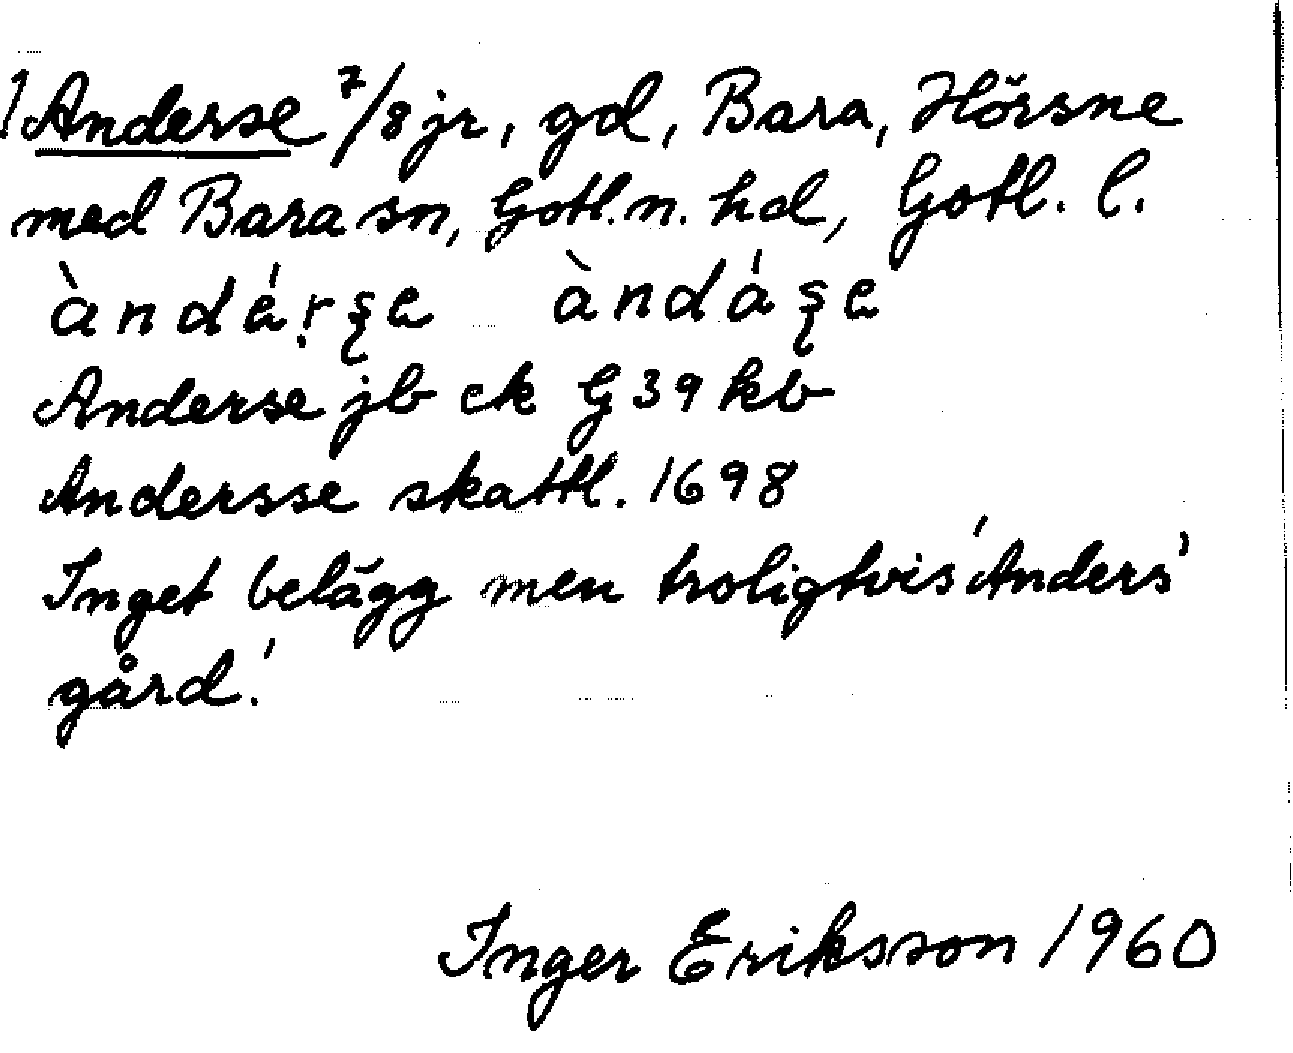 Anderse 7/8 jr, gd, Bara, Hörsne
med Bara sn, Gotl. n. hd, Gotl. l.
àndárşe àndáşe
Anderse jb ek G 39 kb
Andersse skattl. 1698
Inget belägg men troligtvis 'Anders'
gård.'
Inger Eriksson 1960